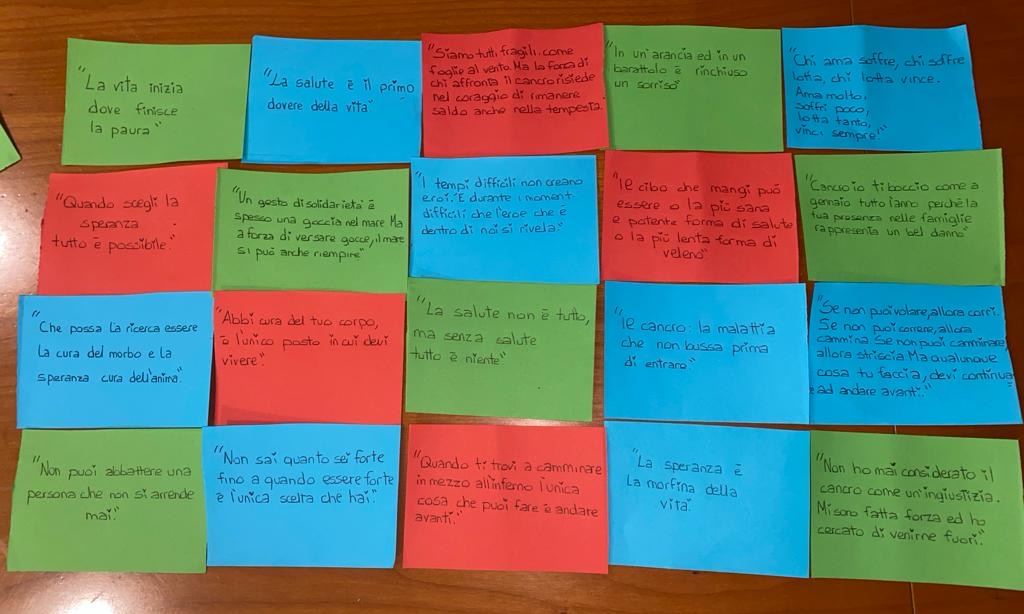 "La vita inizia
dove finisce
la paura"
"La salute è il primo
dovere della vita"
"Siamo tutti fragili, come
foglie al vento. Ma la forza di
chi affronta il cancro risiede
nel coraggio di rimanere
saldo anche nella tempesta.
"In un'arancia ed in un
barattolo è rinchiuso
un sorriso"
"Chi ama soffre, chi soffre
lotta, chi lotta vince.
Ama molto,
soffri poco,
lotta tanto,
vinci sempre!"
"Quando scegli la
speranza
tutto è possibile."
"Un gesto di solidarietà è
spesso una goccia nel mare. Ma
a forza di versare gocce, il mare
si può anche riempire"
"I tempi difficili non creano
eroi. È durante i momenti
difficili che l'eroe che è
dentro di noi si rivela."
"Il cibo che mangi può
essere o la più sana
e potente forma di salute
o la più lenta forma di
veleno"
"Cancro io ti boccio come a
gennaio tutto l'anno perchè la
tua presenza nelle famiglie
rappresenta un bel danno"
"Che possa la ricerca essere
la cura del morbo e la
speranza cura dell'anima."
"Abbi cura del tuo corpo,
è l'unico posto in cui devi
vivere"
"La salute non è tutto,
ma senza salute
tutto è niente"
"Il cancro: la malattia
che non bussa prima
di entrare"
"Se non puoi volare, allora corri.
Se non puoi correre, allora
cammina. Se non puoi camminare,
allora striscia. Ma qualunque
cosa tu faccia, devi continua
re ad andare avanti."
"Non puoi abbattere una
persona che non si arrende
mai."
"Non sai quanto sei forte
fino a quando essere forte
è l'unica scelta che hai."
"Quando ti trovi a camminare
in mezzo all'inferno l'unica
cosa che puoi fare è andare
avanti."
"La speranza è
la morfina della
vita."
"Non ho mai considerato il
cancro come un'ingiustizia.
Mi sono fatta forza ed ho
cercato di venirne fuori."